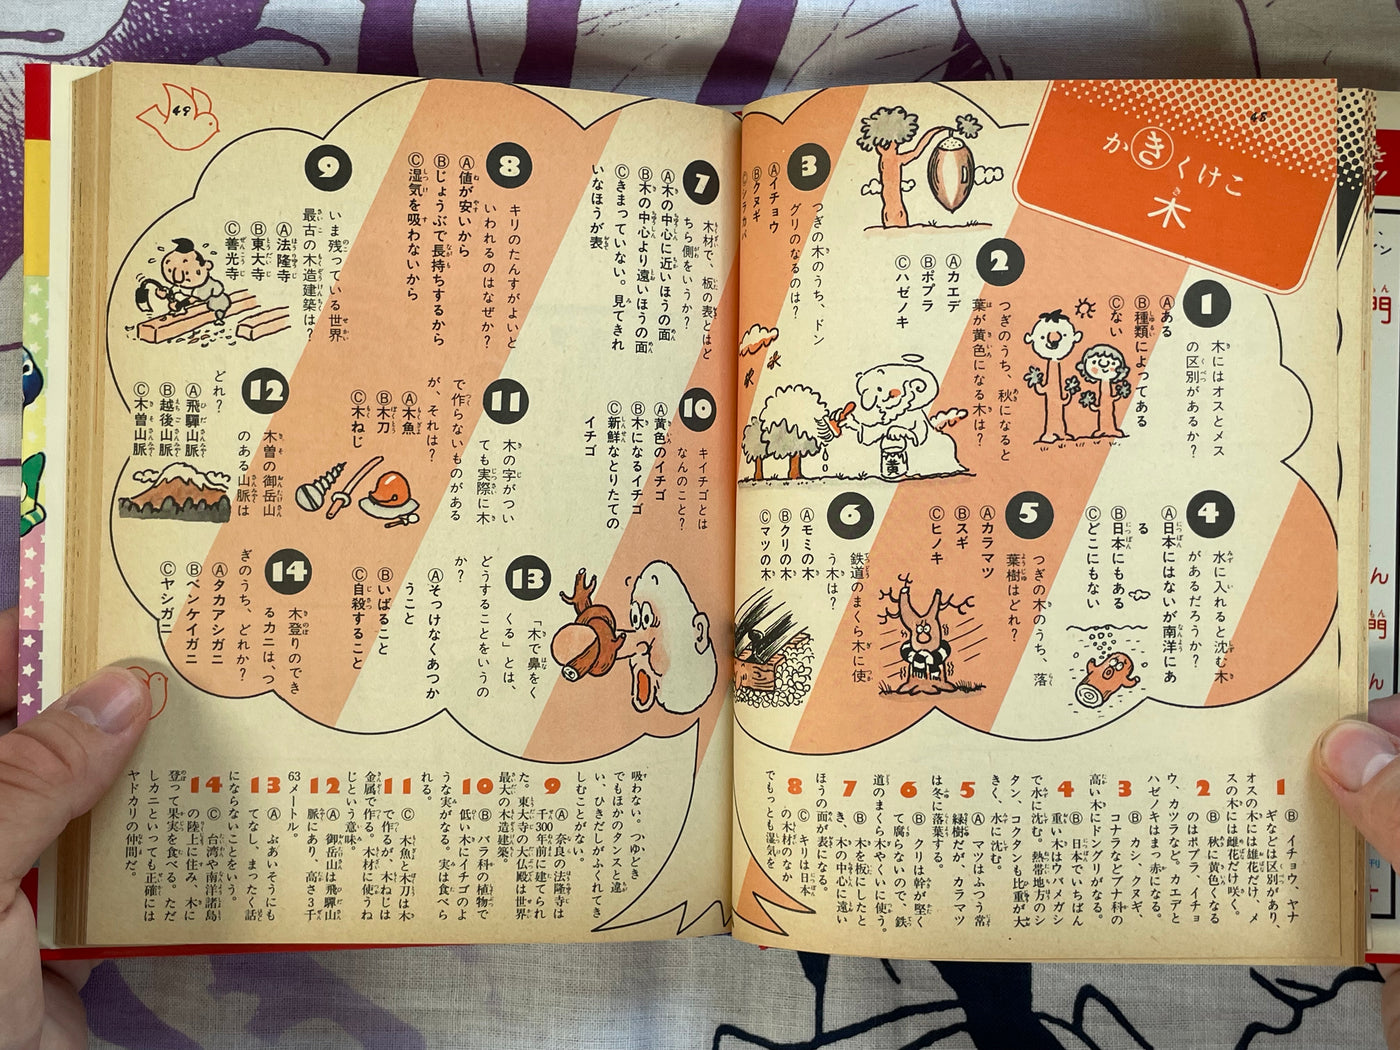 68
かきくけこ
木
1
木にはオスとメス
の区別があるか?
Ⓐある
Ⓑ種類によってある
Ⓒない
2
つぎのうち、秋になると
葉が黄色になる木は?
Ⓐカエデ
Ⓑポプラ
Ⓒハゼノキ
3
つぎの木のうち、ドン
グリのなるのは?
Ⓐイチョウ
Ⓑクヌギ
Ⓒシラカバ
黄
4
水に入れると沈む木
があるだろうか?
Ⓐ日本にはないが南洋にあ
る
Ⓑ日本にもある
Ⓒどこにもない
5
つぎの木のうち、落
葉樹はどれ?
Ⓐカラマツ
Ⓑスギ
Ⓒヒノキ
6
鉄道のまくら木に使
う木は?
Ⓐモミの木
Ⓑクリの木
Ⓒマツの木
1 Ⓑ イチョウ、ヤナ
ギなどは区別があり、
オスの木には雄花だけ、メ
スの木には雌花だけ咲く。
2 Ⓑ 秋に黄色くなる
のはポプラ、イチョ
ウ、カツラなど。カエデと
ハゼノキはまっ赤になる。
3 Ⓑ カシ、クヌギ、
コナラなどブナ科の
高い木にドングリがなる。
4 Ⓑ 日本でいちばん
重い木はウバメガシ
で水に沈む。熱帯地方のシ
タン、コクタンも比重が大
きく、水に沈む。
5 Ⓐ マツはふつう常
緑樹だが、カラマツ
は冬に落葉する。
6 Ⓑ クリは幹が堅く
て腐らないので、鉄
道のまくら木やくいに使う。
7 Ⓑ 木を板にしたと
き、木の中心に遠い
ほうの面が表になる。
8 Ⓒ キリは日本
の木材のなか
でもっとも湿気を
49
7
木材で、板の表とはど
ちら側をいうか?
Ⓐ木の中心に近いほうの面
Ⓑ木の中心より遠いほうの面
Ⓒきまっていない。見てきれ
いなほうが表
8
キリのたんすがよいと
いわれるのはなぜか?
Ⓐ値が安いから
Ⓑじょうぶで長持ちするから
Ⓒ湿気を吸わないから
9
いま残っている世界
最古の木造建築は?
Ⓐ法隆寺
Ⓑ東大寺
Ⓒ善光寺
10
キイチゴとは
なんのこと?
Ⓐ黄色のイチゴ
Ⓑ木になるイチゴ
Ⓒ新鮮なとりたての
イチゴ
11
木の字がつい
ても実際に木
で作らないものがある
が、それは?
Ⓐ木魚
Ⓑ木刀
Ⓒ木ねじ
12
木曽の御岳山
のある山脈は
どれ?
Ⓐ飛驒山脈
Ⓑ越後山脈
Ⓒ木曽山脈
13
「木で鼻をく
くる」とは、
どうすることをいうの
か?
Ⓐそっけなくあつか
うこと
Ⓑいばること
Ⓒ自殺すること
14
木登りのでき
るカニは、つ
ぎのうち、どれか?
Ⓐタカアシガニ
Ⓑベンケイガニ
Ⓒヤシガニ
吸わない。つゆどき
でもほかのタンスと違
い、ひきだしがふくれてき
しむことがない。
9 Ⓐ 奈良の法隆寺は
千300年前に建てられ
た。東大寺の大仏殿は世界
最大の木造建築。
10 Ⓑ バラ科の植物で
低い木にイチゴのよ
うな実がなる。実は食べら
れる。
11 Ⓒ 木魚と木刀は木
で作るが、木ねじは
金属で作る。木材に使うね
じという意味。
12 Ⓐ 御岳山は飛驒山
脈にあり、高さ3千
63メートル。
13 Ⓐ ぶあいそうにも
てなし、まったく話
にならないことをいう。
14 Ⓒ 台湾や南洋諸島
の陸上に住み、木に
登って果実を食べる。ただ
しカニといっても正確には
ヤドカリの仲間だ。